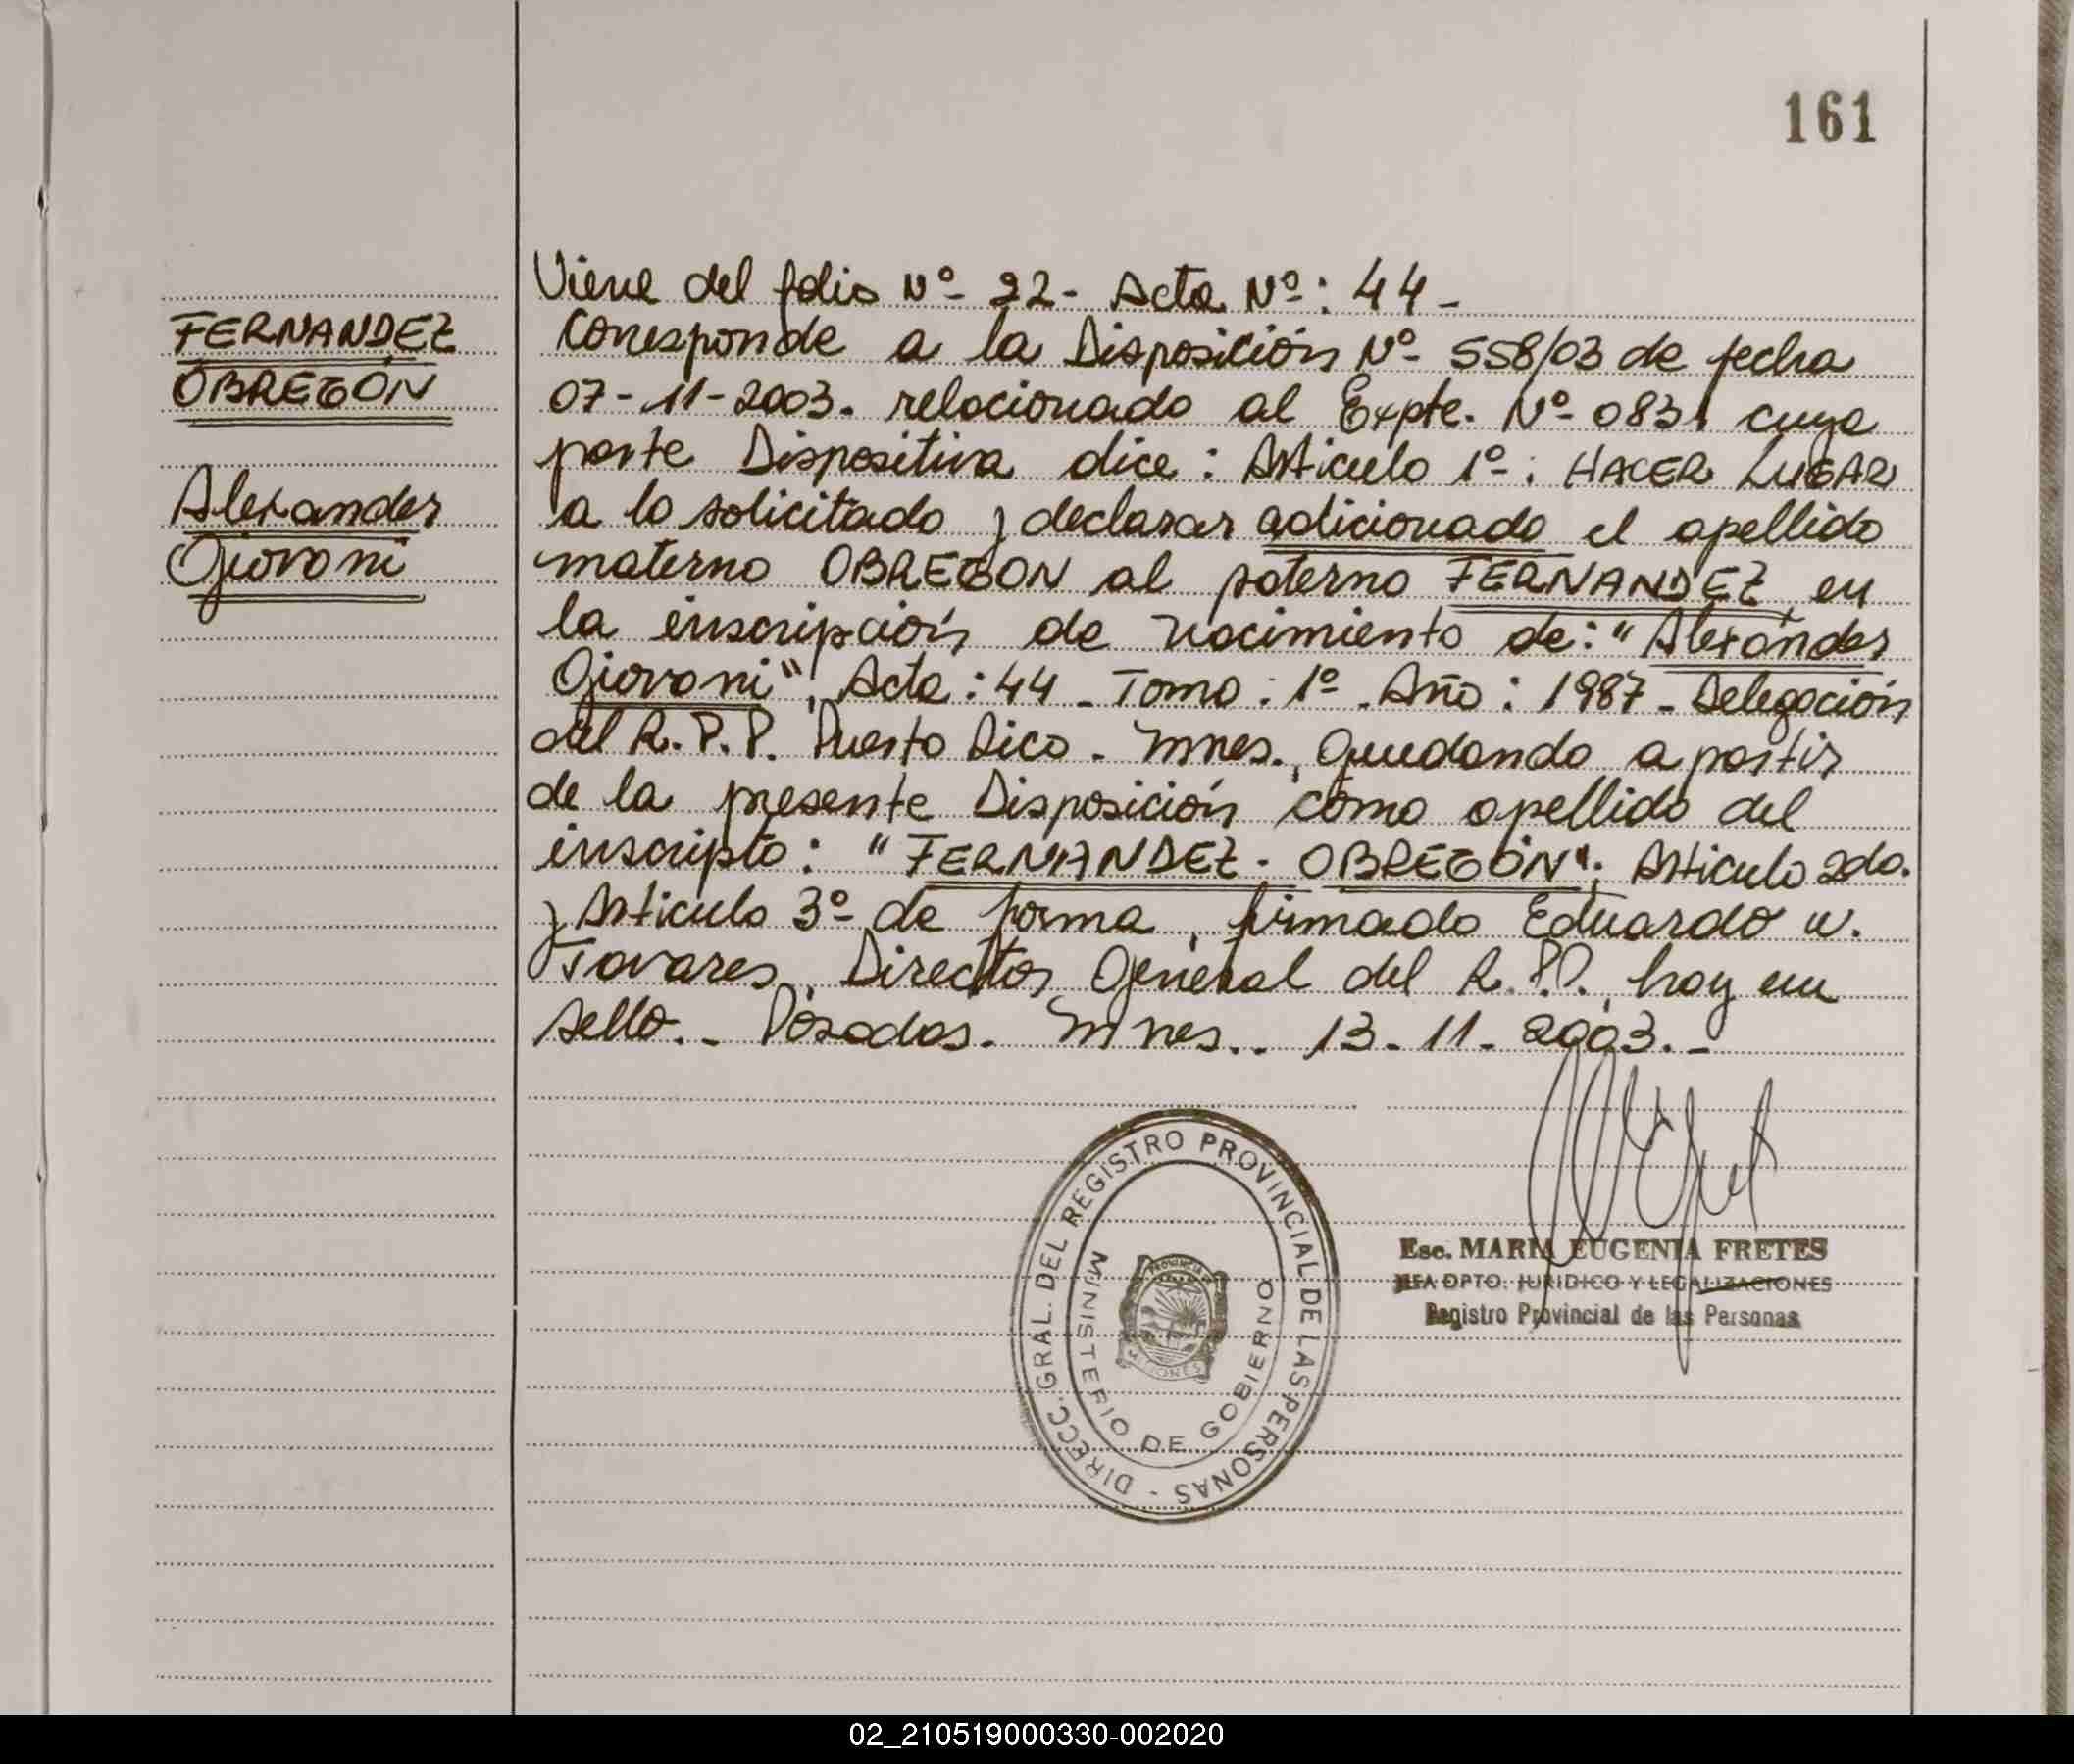 161
FERNANDEZ
OBREGÓN
Alexander
Giovani
Viene del folio Nº 22- Acta Nº: 44-
Corresponde a la Disposición Nº 558/03 de fecha
07-11-2003. relacionado al Expte. Nº 0831 cuya
parte Dispositiva dice: Artículo 1º: HACER LUGAR
a lo solicitado y declarar adicionado el apellido
materno OBREGON al paterno FERNANDEZ, en
la inscripción de nacimiento de: "Alexander
Giovani", Acta: 44 - Tomo: 1º - Año: 1987 - Delegación
del R.P.P. Puerto Rico - Mnes., quedando a partir
de la presente Disposición como apellido del
inscripto: "FERNANDEZ - OBREGÓN"; Artículo 2do.
y Artículo 3º de forma, firmado Eduardo W.
Tavares, Director General del R.P.P. hay un
sello.- Posadas. Mnes.. 13-11-2003.-
DIRECC. GRAL. DEL REGISTRO PROVINCIAL DE LAS PERSONAS -
MINISTERIO DE GOBIERNO
PROVINCIA DE
MISIONES
Esc. MARIA EUGENIA FRETES
JEFA DPTO. JURIDICO Y LEGALIZACIONES
Registro Provincial de las Personas
02_210519000330-002020